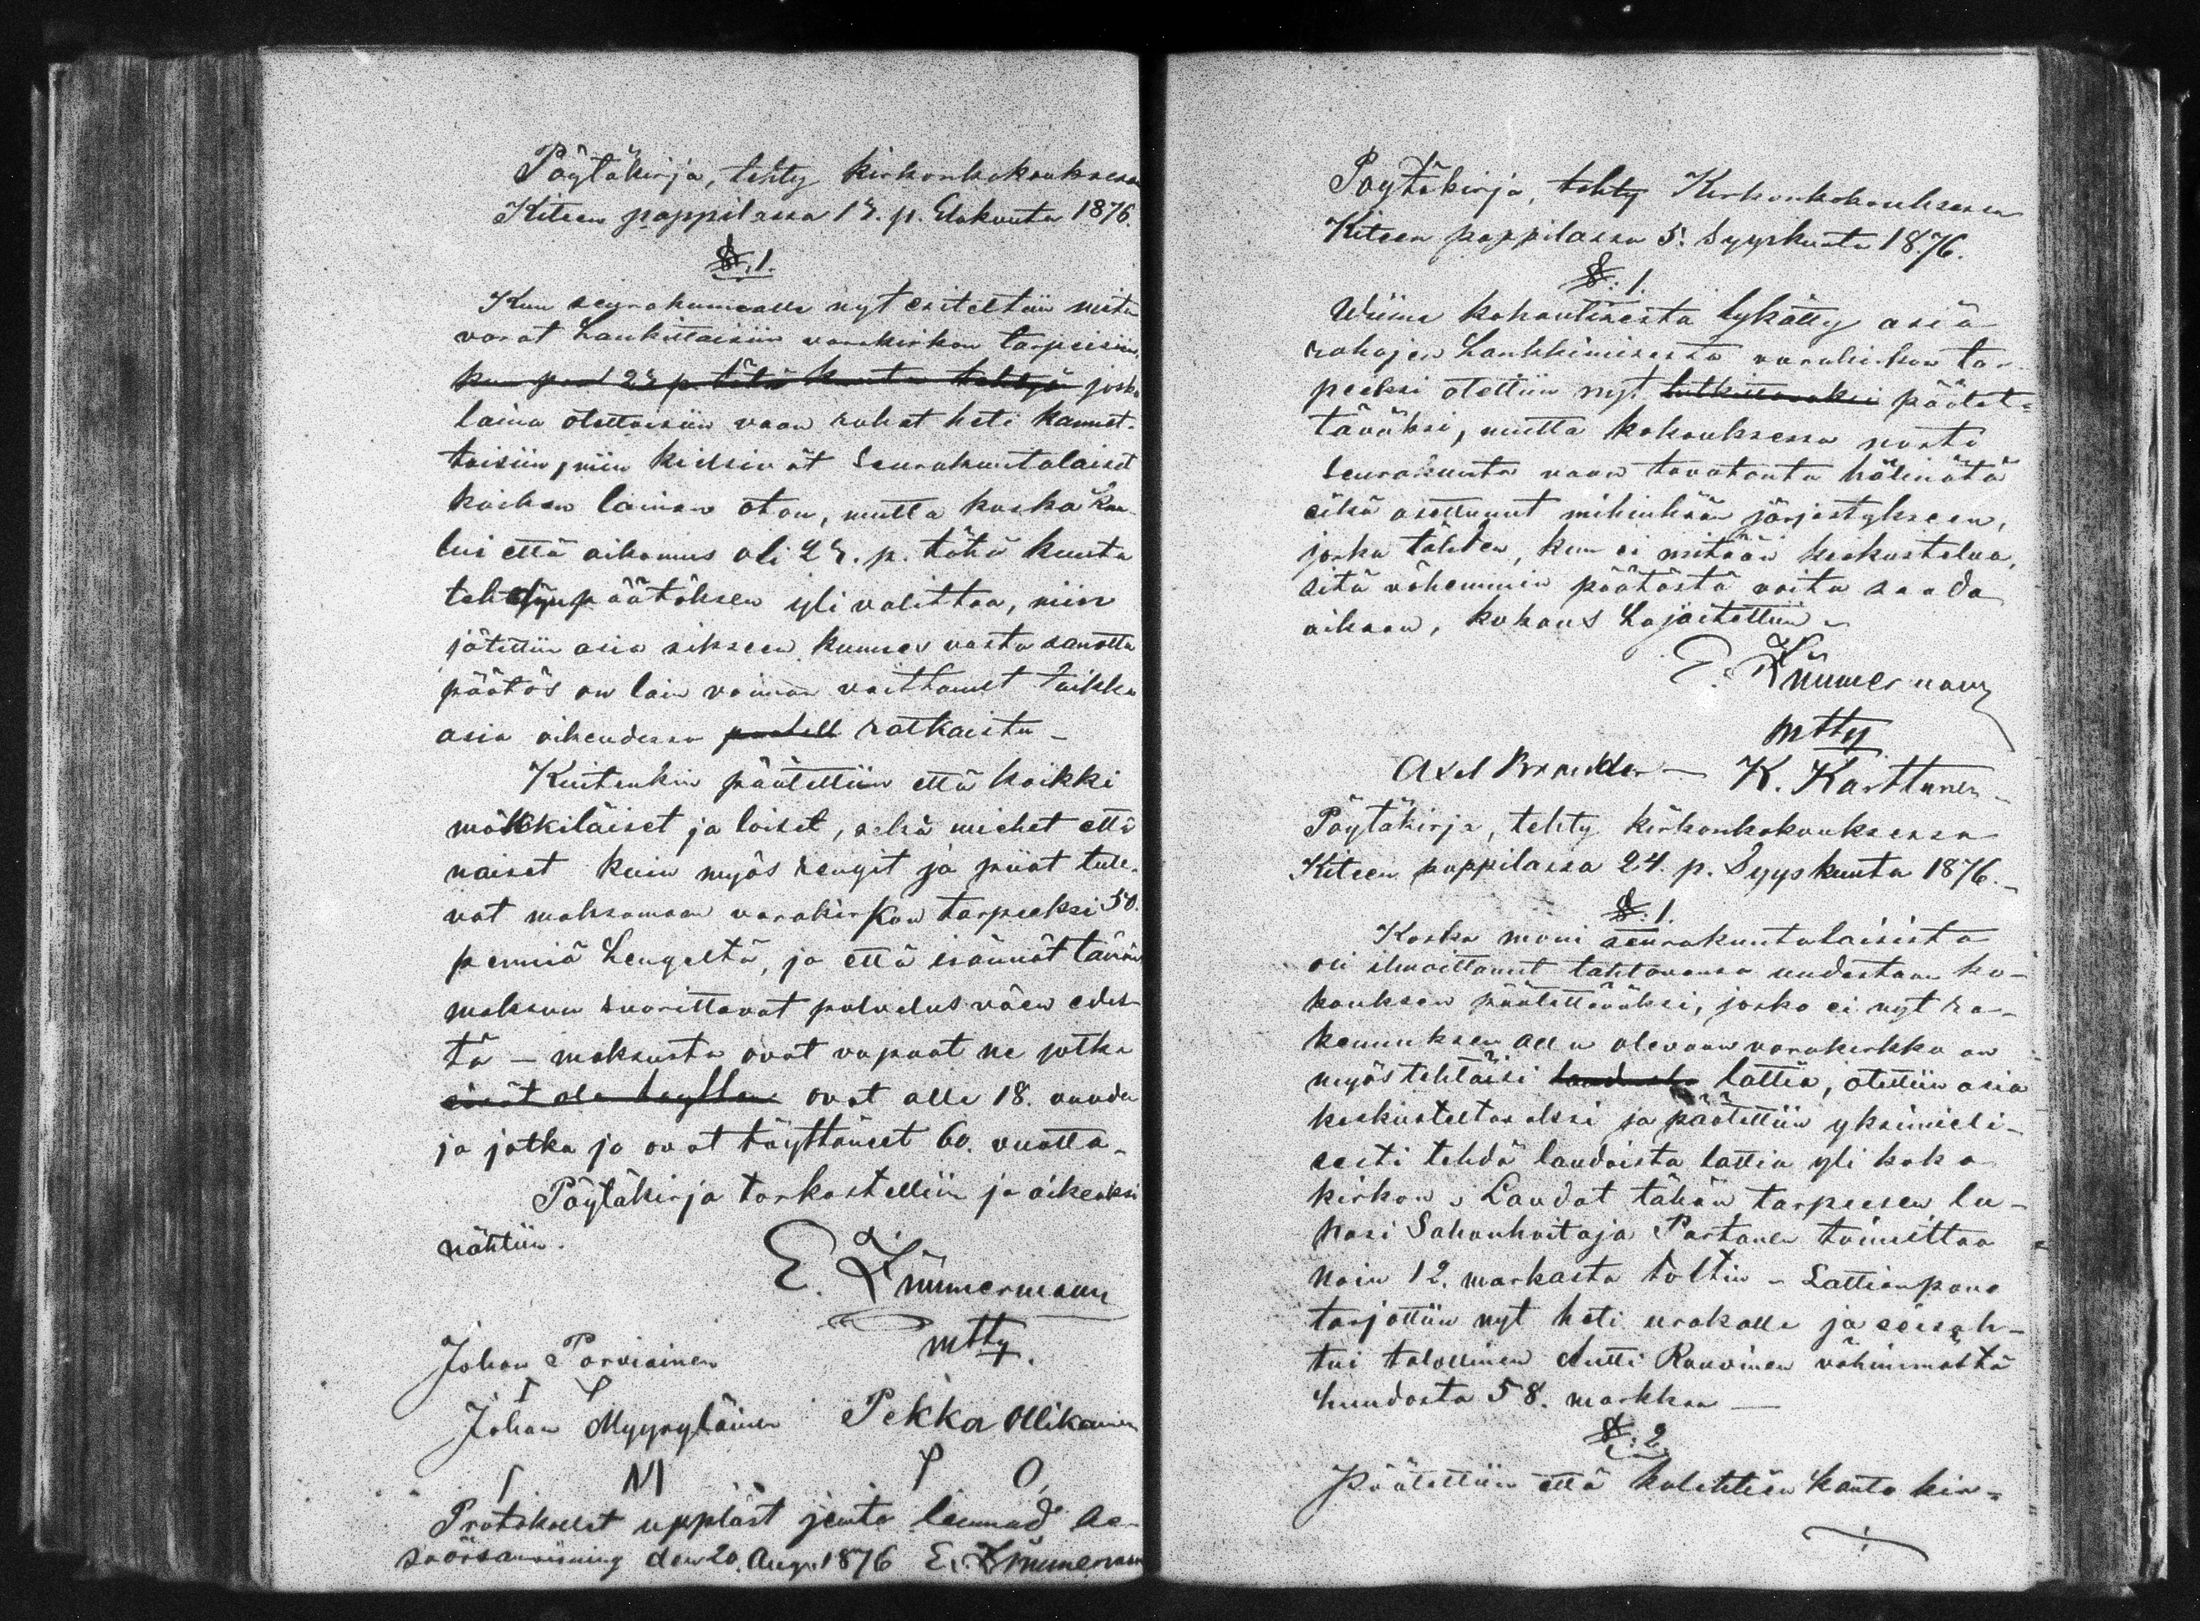 Pöytäkirja, tehty kirkonkokouksessa
Kiteen pappilassa 13. p. Elokuuta 1876.
§. 1.
Kun seurakunnalle nyt esiteltiin mistä
varat hankittaisiin varakirkon tarpeisiin,
23 p. tätä kuuta tehtyä josko
laina otettaisiin vaan rahat heti kannet-
taisiin, niin kielsivät Seurakuntalaiset
kaiken lainan oton, mutta koska kuu-
lui että aikomus oli 23. p. tätä kuuta
tehdyn päätöksen yli valittaa, niin
jätettiin asia sikseen kunnes vasta sanottu
päätös on lain voiman voittanut taikka
asia oikeudessa ratkaistu –
Kuitenkin päätettiin että kaikki
mökkiläiset ja loiset, sekä miehet että
naiset kuin myös rengit ja piiat tule-
vat maksamaan varakirkon tarpeeksi 50.
penniä hengeltä, ja että isännät tämän
maksun suorittavat palvelusväen edes-
tä – maksusta ovat vapaat ne jotka
ovat alle 18. vuoden
ja jotka jo ovat täyttäneet 60. vuotta.
Pöytäkirja tarkastettiin ja oikeaksi
nähtiin.
E. Zimmermann
mtty.
Johan Parviainen
I P
Johan Myyryläinen Pekka Ollikainen
I M P O
Protokollet uppläst jemte lemnad be-
svärsanvisning den 20. Aug. 1876 E. Zimmermann
Pöytäkirja, tehty Kirkonkokouksessa
Kiteen pappilassa 5. Syyskuuta 1876.
§. 1.
Wiime kokouksesta lykätty asia
rahojen hankkimisesta varakirkon tar-
peeksi otettiin nyt päätet-
täväksi, mutta kokouksessa nosti
Seurakunta vaan tavatonta hälinätä
eikä asettunut mihinkään järjestykseen,
jonka tähden, kun ei mitään keskustelua,
sitä vähemmin päätöstä voitu saada
aikaan, kokous hajoitettiin –
E. Zimmermann
mtty
Axel Brander – K. Karttunen –
Pöytäkirja, tehty kirkonkokouksessa
Kiteen pappilassa 24. p. Syyskuuta 1876. –
§. 1.
Koska moni seurakuntalaisista
oli ilmoittanut tahtovansa uudestaan ko-
kouksen päätettäväksi, josko ei nyt ra-
kennuksen alla olevaan varakirkkoon
myös tehtäisi lattia, otettiin asia
keskusteltavaksi ja päätettiin yksimieli-
sesti tehdä laudoista lattia yli koko
kirkon. Laudat tähän tarpeesen lu-
pasi Sahanhoitaja Partanen toimittaa
noin 12. markasta toltin – Lattianpano
tarjottiin nyt heti urakalle ja seisah-
tui talollinen Antti Ruuvinen vähimmästä
huudosta 58. markkaa –
§: 2
Päätettiin että kolehtien kanto kir-